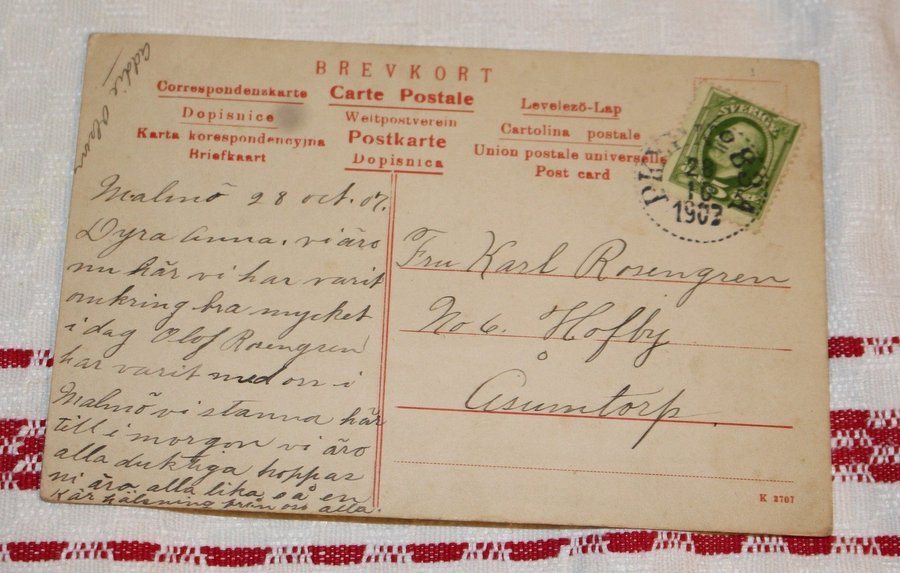 BREVKORT
Correspondenzkarte
Carte Postale
Levelező-Lap
Dopisnice
Weltpostverein
Cartolina postale
Karta korespondencyjna
Postkarte
Union postale universelle
Briefkaart
Dopisnica
Post card
Addie Olson
SVERIGE
28
10
1907
Malmö 28 oct. 07.
Dyra Anna. vi äro
nu här vi har varit
omkring bra mycket
i dag Olof Rosengren
har varit med om i
Malmö vi stanna här
till i morgon vi äro
alla duktiga hoppas
ni äro alla lika så en
Kär hälsning från oss alla.
Fru Karl Rosengren
No 6. Hofby
Åsumtorp.
K 2707